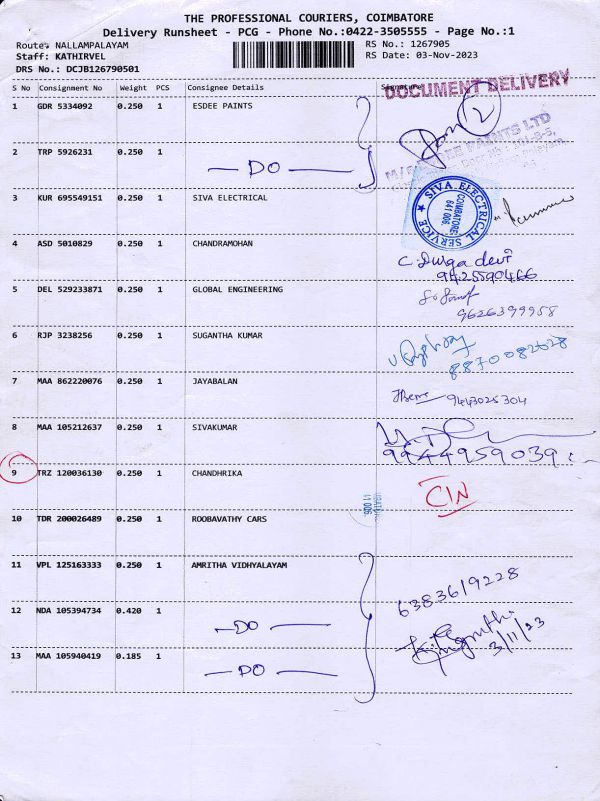 THE PROFESSIONAL COURIERS, COIMBATORE
Delivery Runsheet - PCG - Phone No.:0422-3505555 - Page No.:1
Route: NALLAMPALAYAM
RS No.: 1267905
Staff: KATHIRVEL
RS Date: 03-Nov-2023
DRS No.: DCJB126790501
S No Consignment No Weight PCS Consignee Details Signature
DOCUMENT DELIVERY
1 GDR 5334092 0.250 1 ESDEE PAINTS
2
2 TRP 5926231 0.250 1 DO
3 KUR 695549151 0.250 1 SIVA ELECTRICAL
SIVA ELECTRICAL SERVICE
COIMBATORE
641 006.
4 ASD 5010829 0.250 1 CHANDRAMOHAN
C. Durga devi
9425590466
5 DEL 529233871 0.250 1 GLOBAL ENGINEERING
9626399958
6 RJP 3238256 0.250 1 SUGANTHA KUMAR
8870082828
7 MAA 862220076 0.250 1 JAYABALAN
9443025304
8 MAA 105212637 0.250 1 SIVAKUMAR
9944959039
9 TRZ 120036130 0.250 1 CHANDHRIKA
CIN
10 TDR 200026489 0.250 1 ROOBAVATHY CARS
11 VPL 125163333 0.250 1 AMRITHA VIDHYALAYAM
6383619228
12 NDA 105394734 0.420 1 DO
3/11/23
13 MAA 105940419 0.185 1 DO